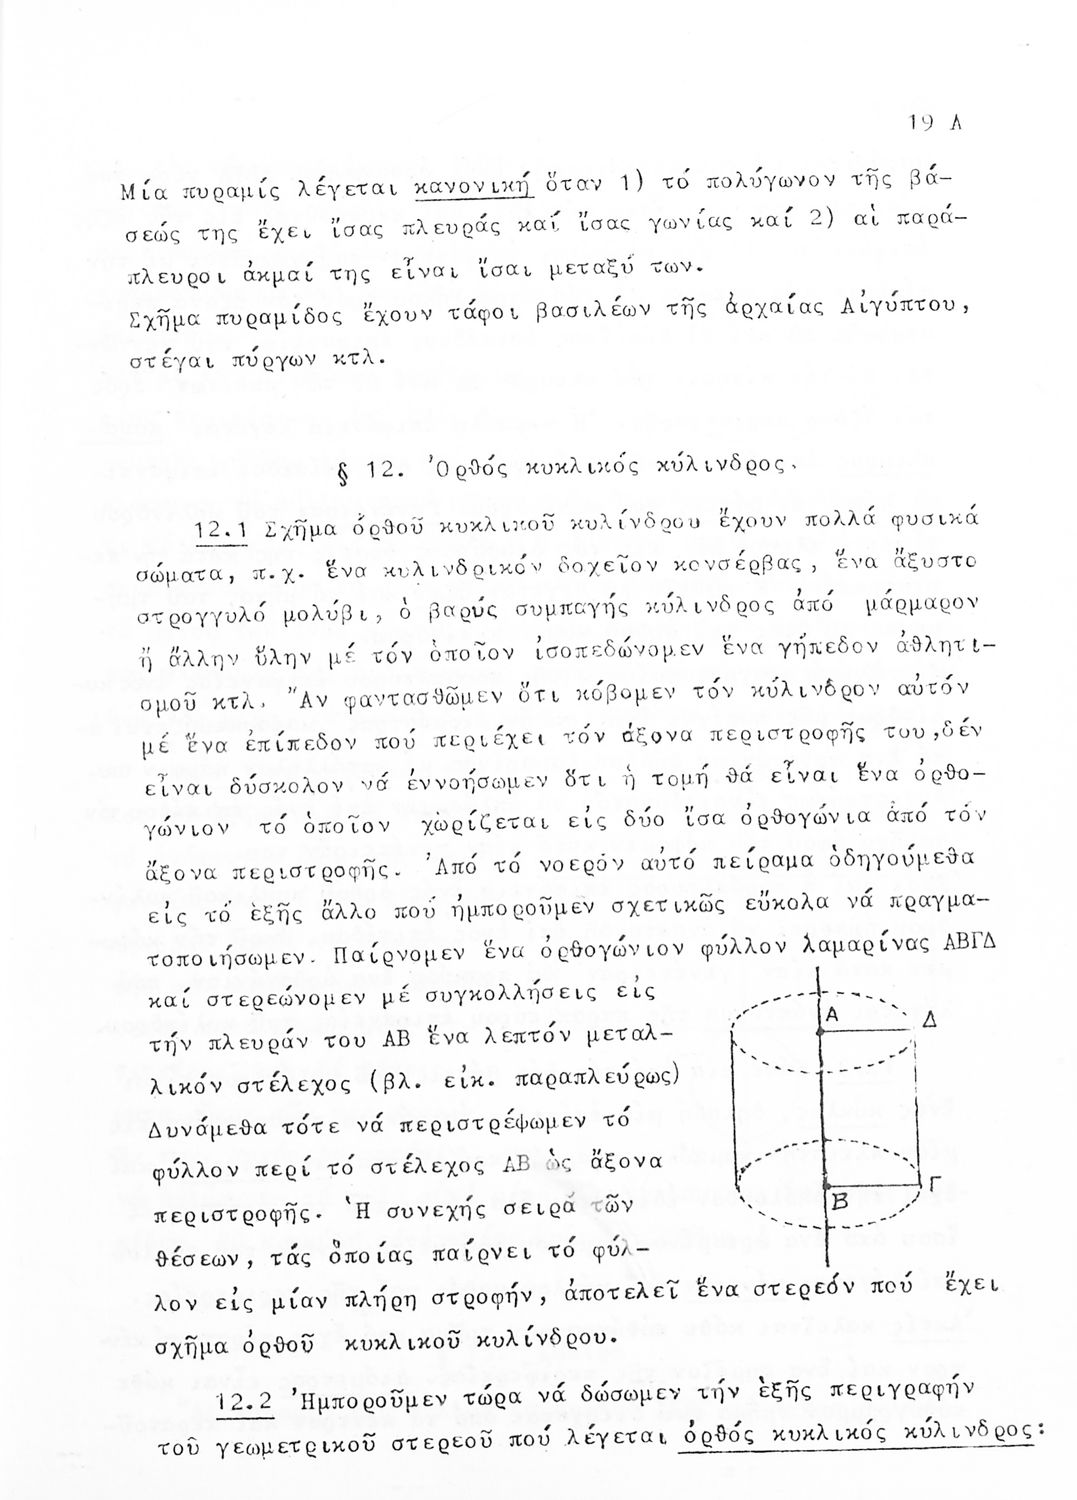 19 Λ
Μία πυραμίς λέγεται κανονική ὅταν 1) τό πολύγωνον τῆς βά-
σεώς της ἔχει ἴσας πλευράς καί ἴσας γωνίας καί 2) αἱ παρά-
πλευροι ἀκμαί της εἶναι ἴσαι μεταξύ των.
Σχῆμα πυραμίδος ἔχουν τάφοι βασιλέων τῆς ἀρχαίας Αἰγύπτου,
στέγαι πύργων κτλ.
§ 12. Ὀρθός κυκλικός κύλινδρος.
12.1 Σχῆμα ὀρθοῦ κυκλικοῦ κυλίνδρου ἔχουν πολλά φυσικά
σώματα, π.χ. ἕνα κυλινδρικόν δοχεῖον κονσέρβας, ἕνα ἄξυστο
στρογγυλό μολύβι, ὁ βαρύς συμπαγής κύλινδρος ἀπό μάρμαρον
ἤ ἄλλην ὕλην μέ τόν ὁποῖον ἰσοπεδώνομεν ἕνα γήπεδον ἀθλητι-
σμοῦ κτλ. Ἄν φαντασθῶμεν ὅτι κόβομεν τόν κύλινδρον αὐτόν
μέ ἕνα ἐπίπεδον πού περιέχει τόν ἄξονα περιστροφῆς του,δέν
εἶναι δύσκολον νά ἐννοήσωμεν ὅτι ἡ τομή θά εἶναι ἕνα ὀρθο-
γώνιον τό ὁποῖον χωρίζεται εἰς δύο ἴσα ὀρθογώνια ἀπό τόν
ἄξονα περιστροφῆς. Ἀπό τό νοερόν αὐτό πείραμα ὁδηγούμεθα
εἰς τό ἑξῆς ἄλλο πού ἠμποροῦμεν σχετικῶς εὔκολα νά πραγμα-
τοποιήσωμεν. Παίρνομεν ἕνα ὀρθογώνιον φύλλον λαμαρίνας ΑΒΓΔ
καί στερεώνομεν μέ συγκολλήσεις εἰς
τήν πλευράν του ΑΒ ἕνα λεπτόν μεταλ-
λικόν στέλεχος (βλ. εἰκ. παραπλεύρως)
Δυνάμεθα τότε νά περιστρέψωμεν τό
φύλλον περί τό στέλεχος ΑΒ ὡς ἄξονα
περιστροφῆς. Ἡ συνεχής σειρά τῶν
θέσεων, τάς ὁποίας παίρνει τό φύλ-
λον εἰς μίαν πλήρη στροφήν, ἀποτελεῖ ἕνα στερεόν πού ἔχει
σχῆμα ὀρθοῦ κυκλικοῦ κυλίνδρου.
Α
Δ
Γ
Β
12.2 Ἠμποροῦμεν τώρα νά δώσωμεν τήν ἑξῆς περιγραφήν
τοῦ γεωμετρικοῦ στερεοῦ πού λέγεται ὀρθός κυκλικός κύλινδρος: